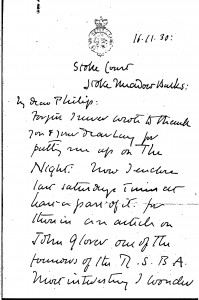 16.11.30:
Stoke Court
Stoke Meadow Bucks:
My dear Philip:
Forgive I never wrote to thank
you & your dear Lady for
putting me up on the
Night. Now I enclose
last saturdays Times at
least a part of it. for
therein is an article on
John Glover one of the
founders of the R.S.B.A.
Most interesting I wonder